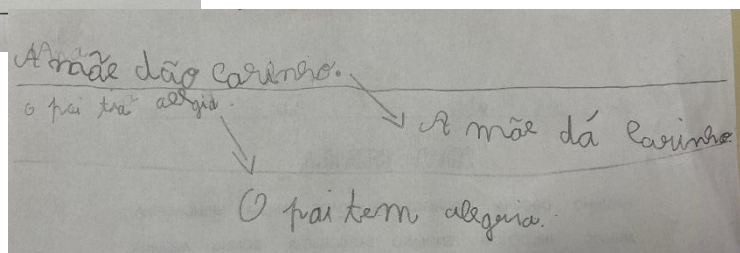 A mããe dão carinho.
o pai trã alegia.
A mãe dá carinho.
O pai tem alegria.